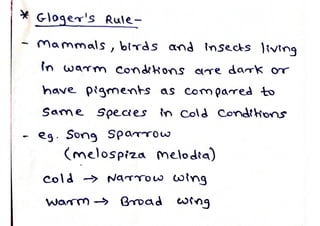 * Gloger's Rule-
- Mammals, birds and Insects living
in warm conditions are dark or
have pigments as compared to
same species in cold conditions
- eg. Song Sparrow
(melospiza melodia)
cold → Narrow wing
warm → Broad wing